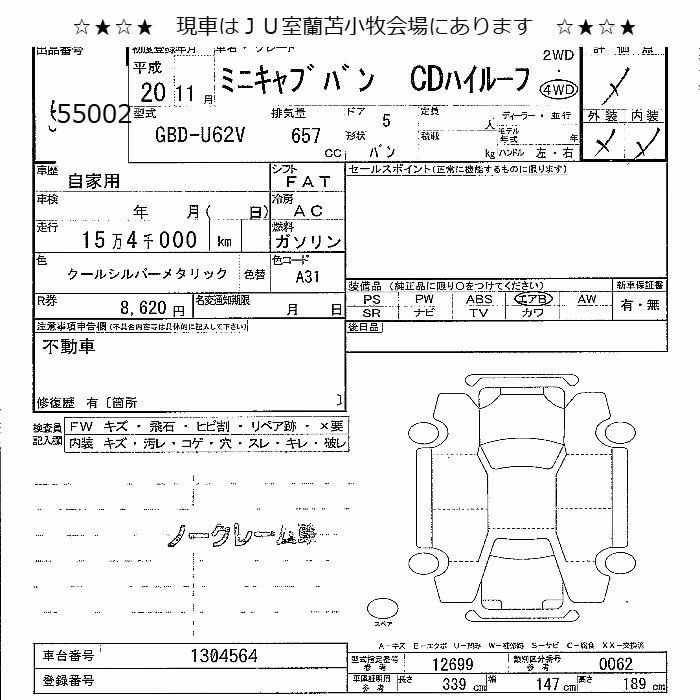 ☆★☆★ 現車はＪＵ室蘭苫小牧会場にあります ☆★☆★
出品番号 初度登録年月 車名・グレード 2WD 評価点
55002 平成 20 11 月 ミニキャブバン CDハイルーフ ・ 4WD
型式 GBD-U62V 排気量 657 CC ドア 5 定員 人 ディーラー・並行 外装 内装
形状 バン 積載 kg モデル年式 年 ハンドル 左・右
車歴 自家用 シフト FAT セールスポイント(正常に機能するものに限ります)
車検 年 月( 日) 冷房 AC
走行 15万4千000 km 燃料 ガソリン
色 クールシルバーメタリック 色替 色コード A31
装備品 (純正品に限り○をつけてください) 新車保証書
R券 8,620 円 名変通知期限 月 日 PS PW ABS エアB AW 有・無
SR ナビ TV カワ
注意事項申告欄(不具合内容等は具体的に記入して下さい) 後日品
不動車
修復歴 有〔箇所 〕
検査員記入欄 FW キズ・飛石・ヒビ割・リペア跡・×要
内装 キズ・汚レ・コゲ・穴・スレ・キレ・破レ
ノークレーム
スペア
A-キズ E-エクボ U-凹み W-補修跡 S-サビ C-腐食 XX-交換済
車台番号 1304564 型式指定番号 参考 12699 類別区分番号 参考 0062
登録番号 車庫証明用 参考 長さ 339 cm 幅 147 cm 高さ 189 cm